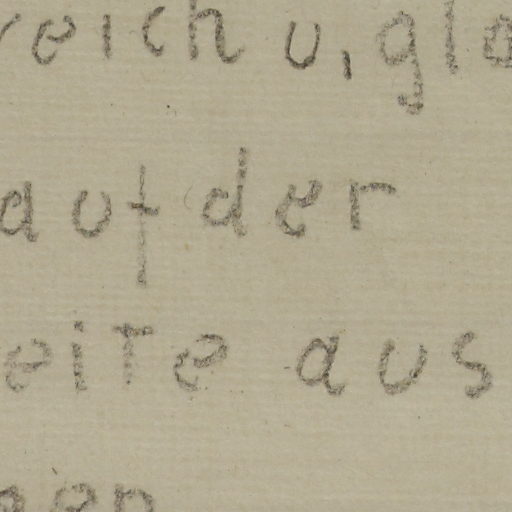 reich u, gla
auf der
eite aus
gen